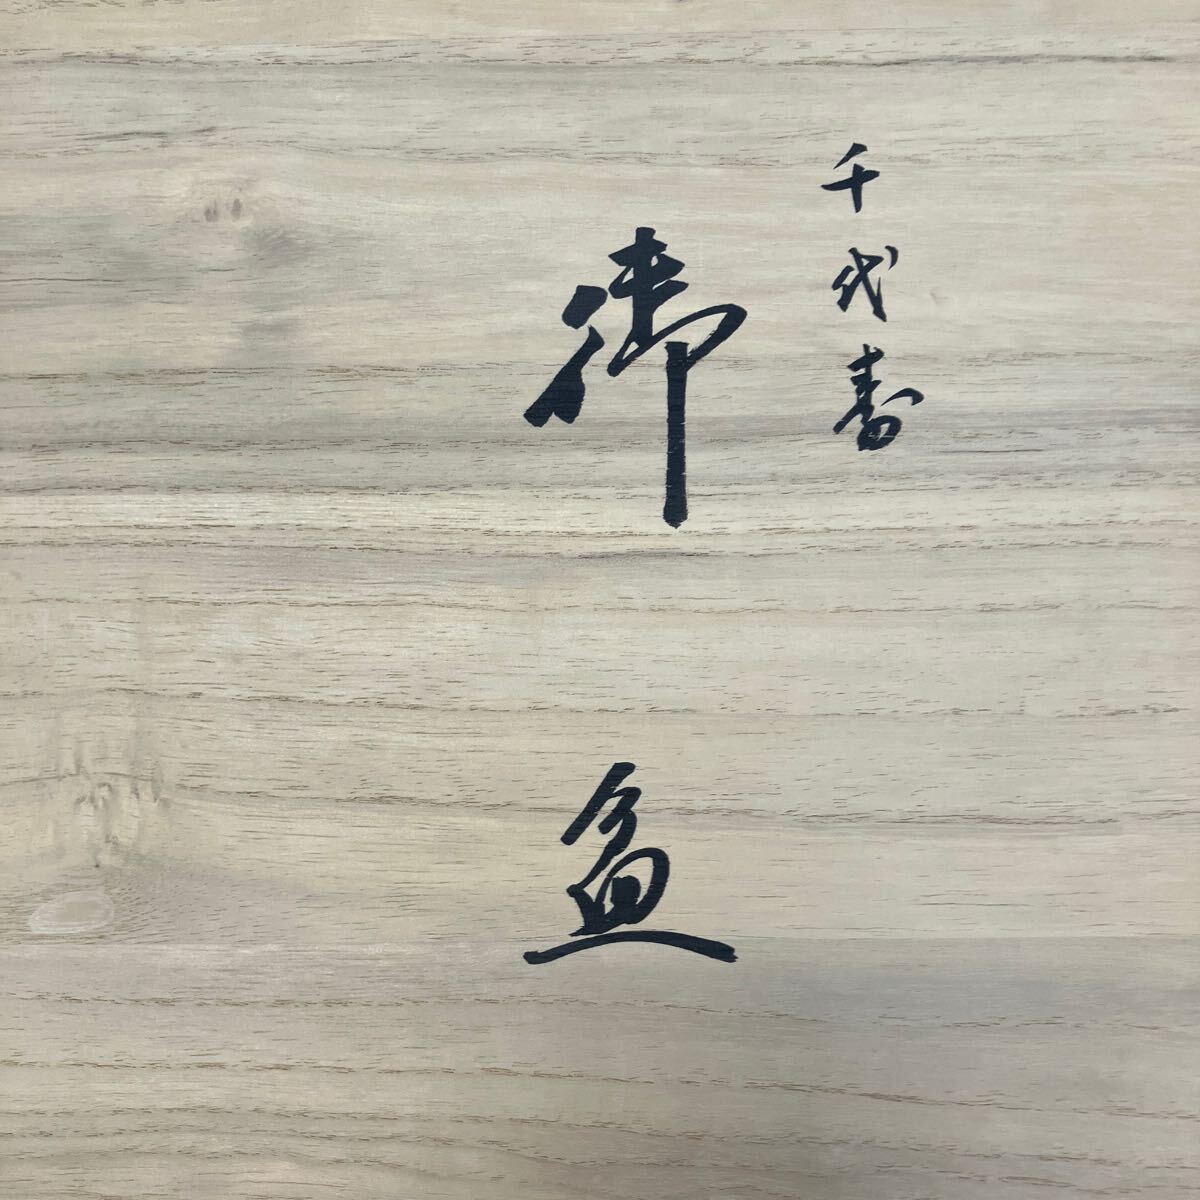 千代寿
御盆